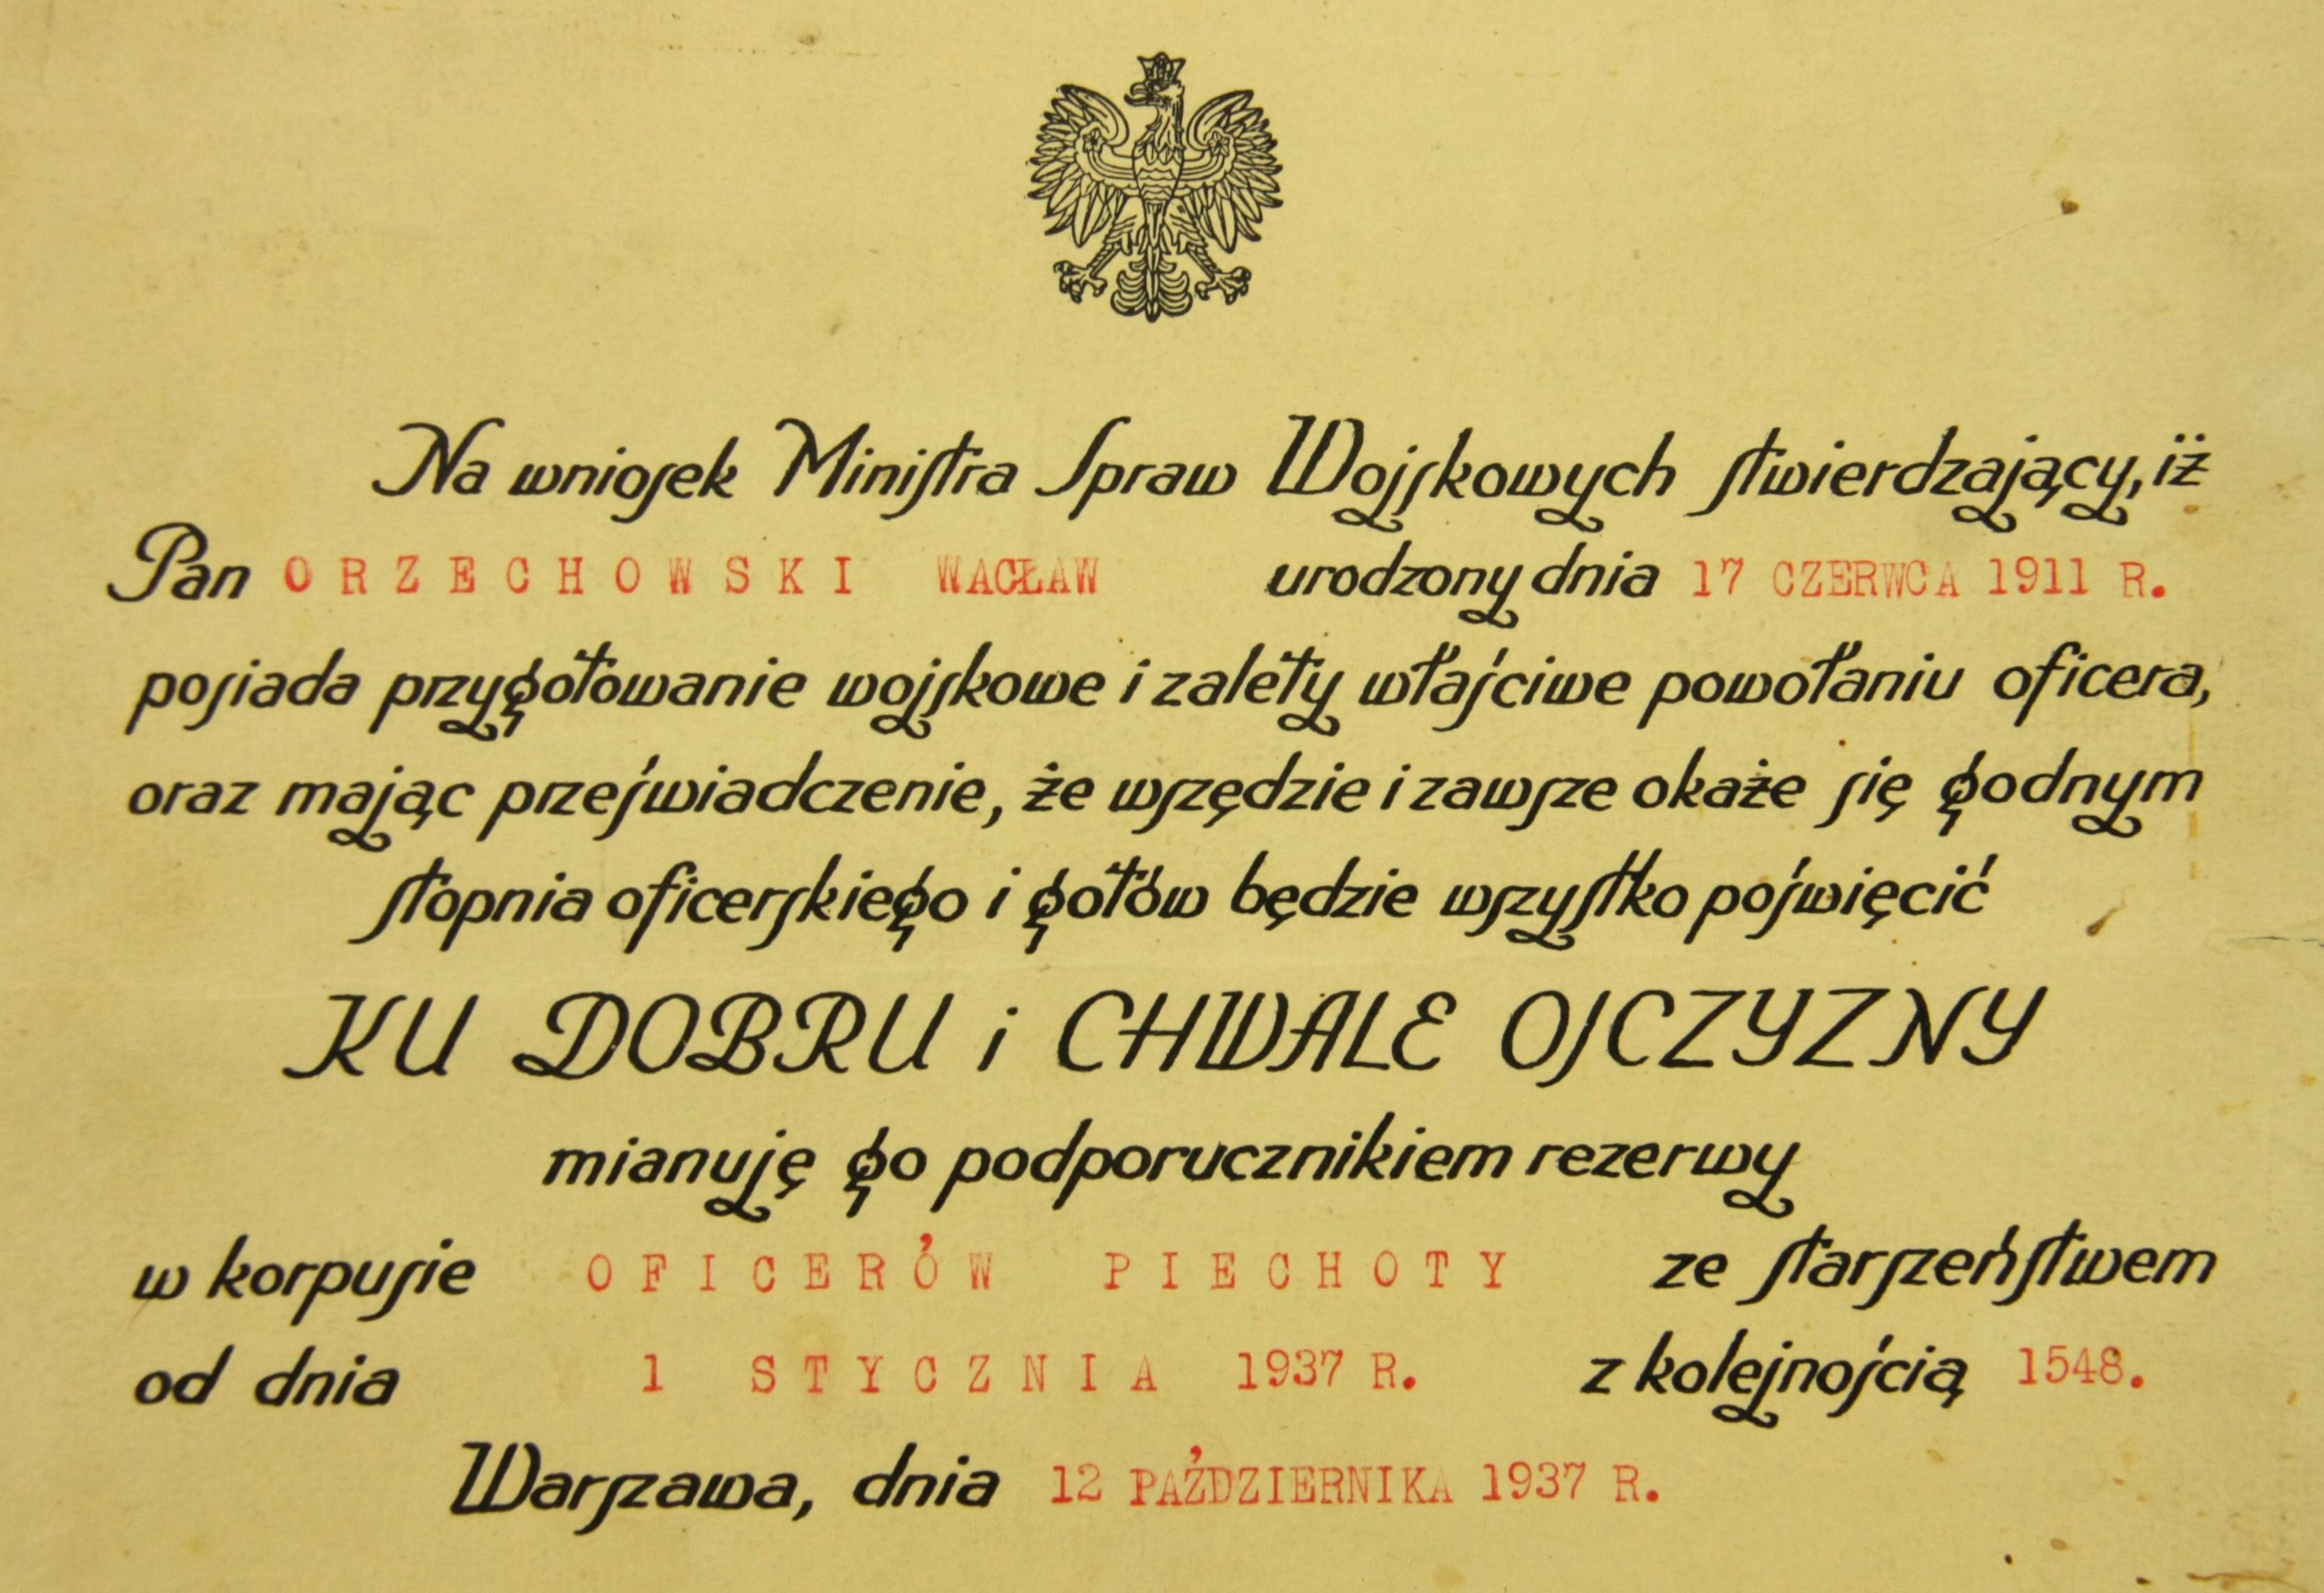 Na wniosek Ministra Spraw Wojskowych stwierdzający, iż
Pan ORZECHOWSKI WACŁAW urodzony dnia 17 CZERWCA 1911 R.
posiada przygotowanie wojskowe i zalety właściwe powołaniu oficera,
oraz mając przeświadczenie, że wszędzie i zawsze okaże się godnym
stopnia oficerskiego i gotów będzie wszystko poświęcić
KU DOBRU i CHWALE OJCZYZNY
mianuję go podporucznikiem rezerwy
w korpusie OFICERÓW PIECHOTY ze starszeństwem
od dnia 1 STYCZNIA 1937 R. z kolejnością 1548.
Warszawa, dnia 12 PAŹDZIERNIKA 1937 R.